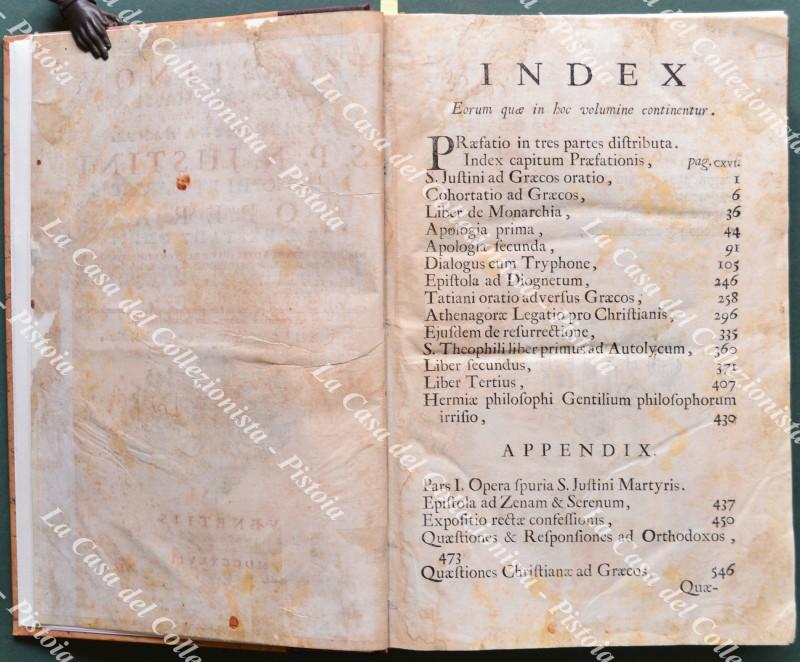 INDEX
Eorum quæ in hoc volumine continentur.
PRæfatio in tres partes diſtributa.
Index capitum Præfationis, pag. cxvi.
S. Juſtini ad Græcos oratio, 1
Cohortatio ad Græcos, 6
Liber de Monarchia, 36
Apologia prima, 44
Apologia ſecunda, 91
Dialogus cum Tryphone, 105
Epiſtola ad Diognetum, 246
Tatiani oratio adverſus Græcos, 258
Athenagoræ Legatio pro Chriſtianis, 296
Ejuſdem de reſurrectione, 335
S. Theophili liber primus ad Autolycum, 360
Liber ſecundus, 371
Liber Tertius, 407
Hermiæ philoſophi Gentilium philoſophorum
irriſio, 430
APPENDIX.
Pars I. Opera ſpuria S. Juſtini Martyris.
Epiſtola ad Zenam & Serenum, 437
Expoſitio rectæ confeſſionis, 450
Quæſtiones & Reſponſiones ad Orthodoxos,
473
Quæſtiones Chriſtianæ ad Græcos 546
Quæ-
La Casa del Collezionista - Pistoia